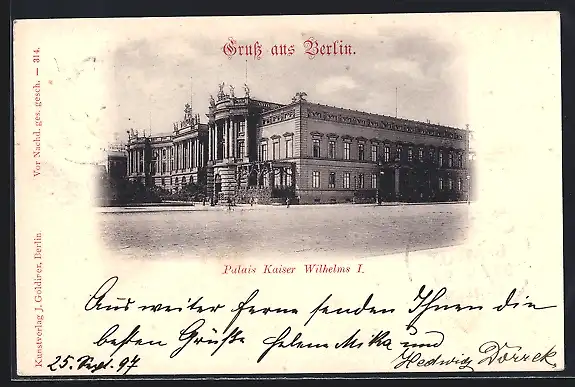 Gruß aus Berlin.
Vor Nachd. ges. gesch. — 314.
Kunstverlag J. Goldiner, Berlin.
Palais Kaiser Wilhelms I.
Aus weiter Ferne senden Ihnen die
besten Grüße Helene Mika und
Hedwig
25. Sept. 97